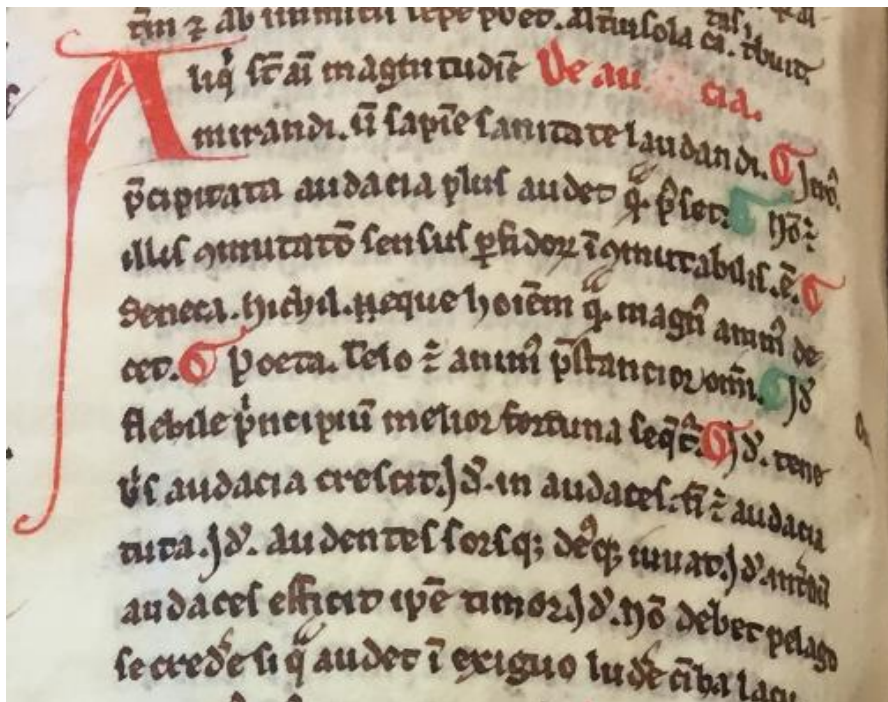 tm̄ ⁊ ab inimicis sepe poet. altiusola ca. tbuit.
Aliqͥ st̄ aī magnitudīe De au cia.
mirandi. n̄ sapīe sanitate laudandi. ¶ Jero.
p̄cipitata audacia plus audet qͣ p̄set. ¶ Nō ē
illis ꝯmutatō sensus ꝑfidoꝝ īꝯmutabilis. ē. ¶
Seneca. Nichil. neque hoīem qͣ. magn̄ anim̄ de
cet. ¶ Poeta. Telo ē anim̄ p̄stancior omī. ¶ Jd̄
flebile pͥncipiū melior fortuna seqͭ. ¶ Jd̄. tene
bͥs audacia crescit. Jd̄. in audaces. n̄ ē audacia
tuta. Jd̄. audentes forsqꝫ deꝰqꝫ iuuat. Jd̄.
audaces efficit ip̄e timor. Jd̄. Nō debet pelago
se cred̄e si qͣ audet ī exiguo lud̄e cība lacu